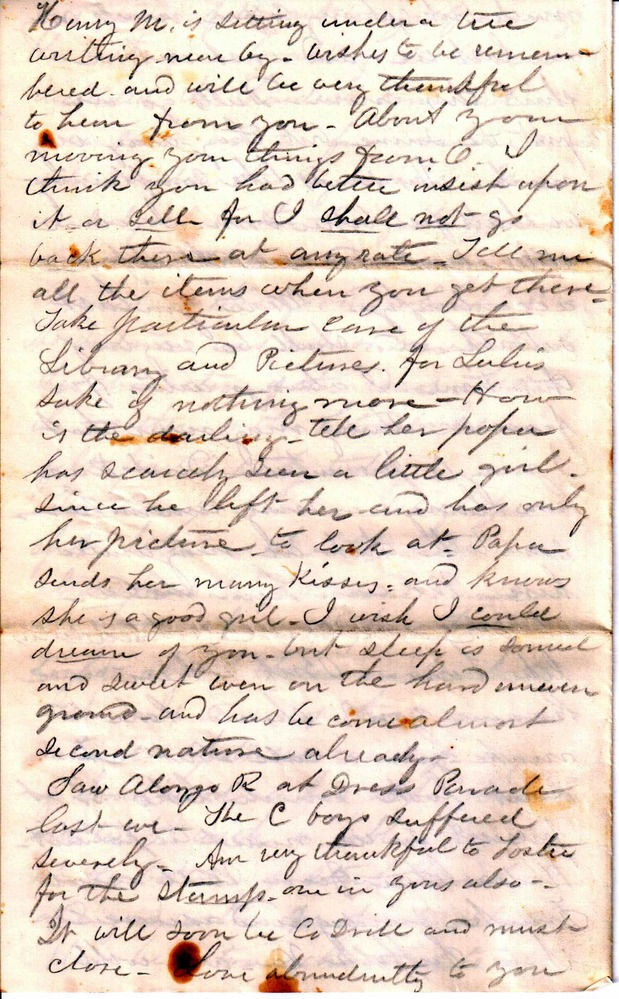 Henry M. is sitting under a tree
writing near by - wishes to be remem-
bered and will be very thankful
to hear from you - About your
moving your things from O. I
think you had better insist upon
it or sell for I shall not go
back there at any rate - Tell me
all the items when you get there -
Take particular care of the
Library and Pictures. for Lulu's
sake if nothing more - How
is the darling - tell her papa
has scarcely seen a little girl -
since he left her and has only
her picture to look at - Papa
sends her many Kisses - and knows
she is a good girl - I wish I could
dream of you - but sleep is sound
and sweet even on the hard uneven
ground - and has become almost
second nature already -
Saw Alonzo R at Dress Parade
last eve - The C boys suffered
severely - Am very thankful to Foster
for the stamps - one in yours also -
It will soon be Co Drill and must
close - Love abundantly to you